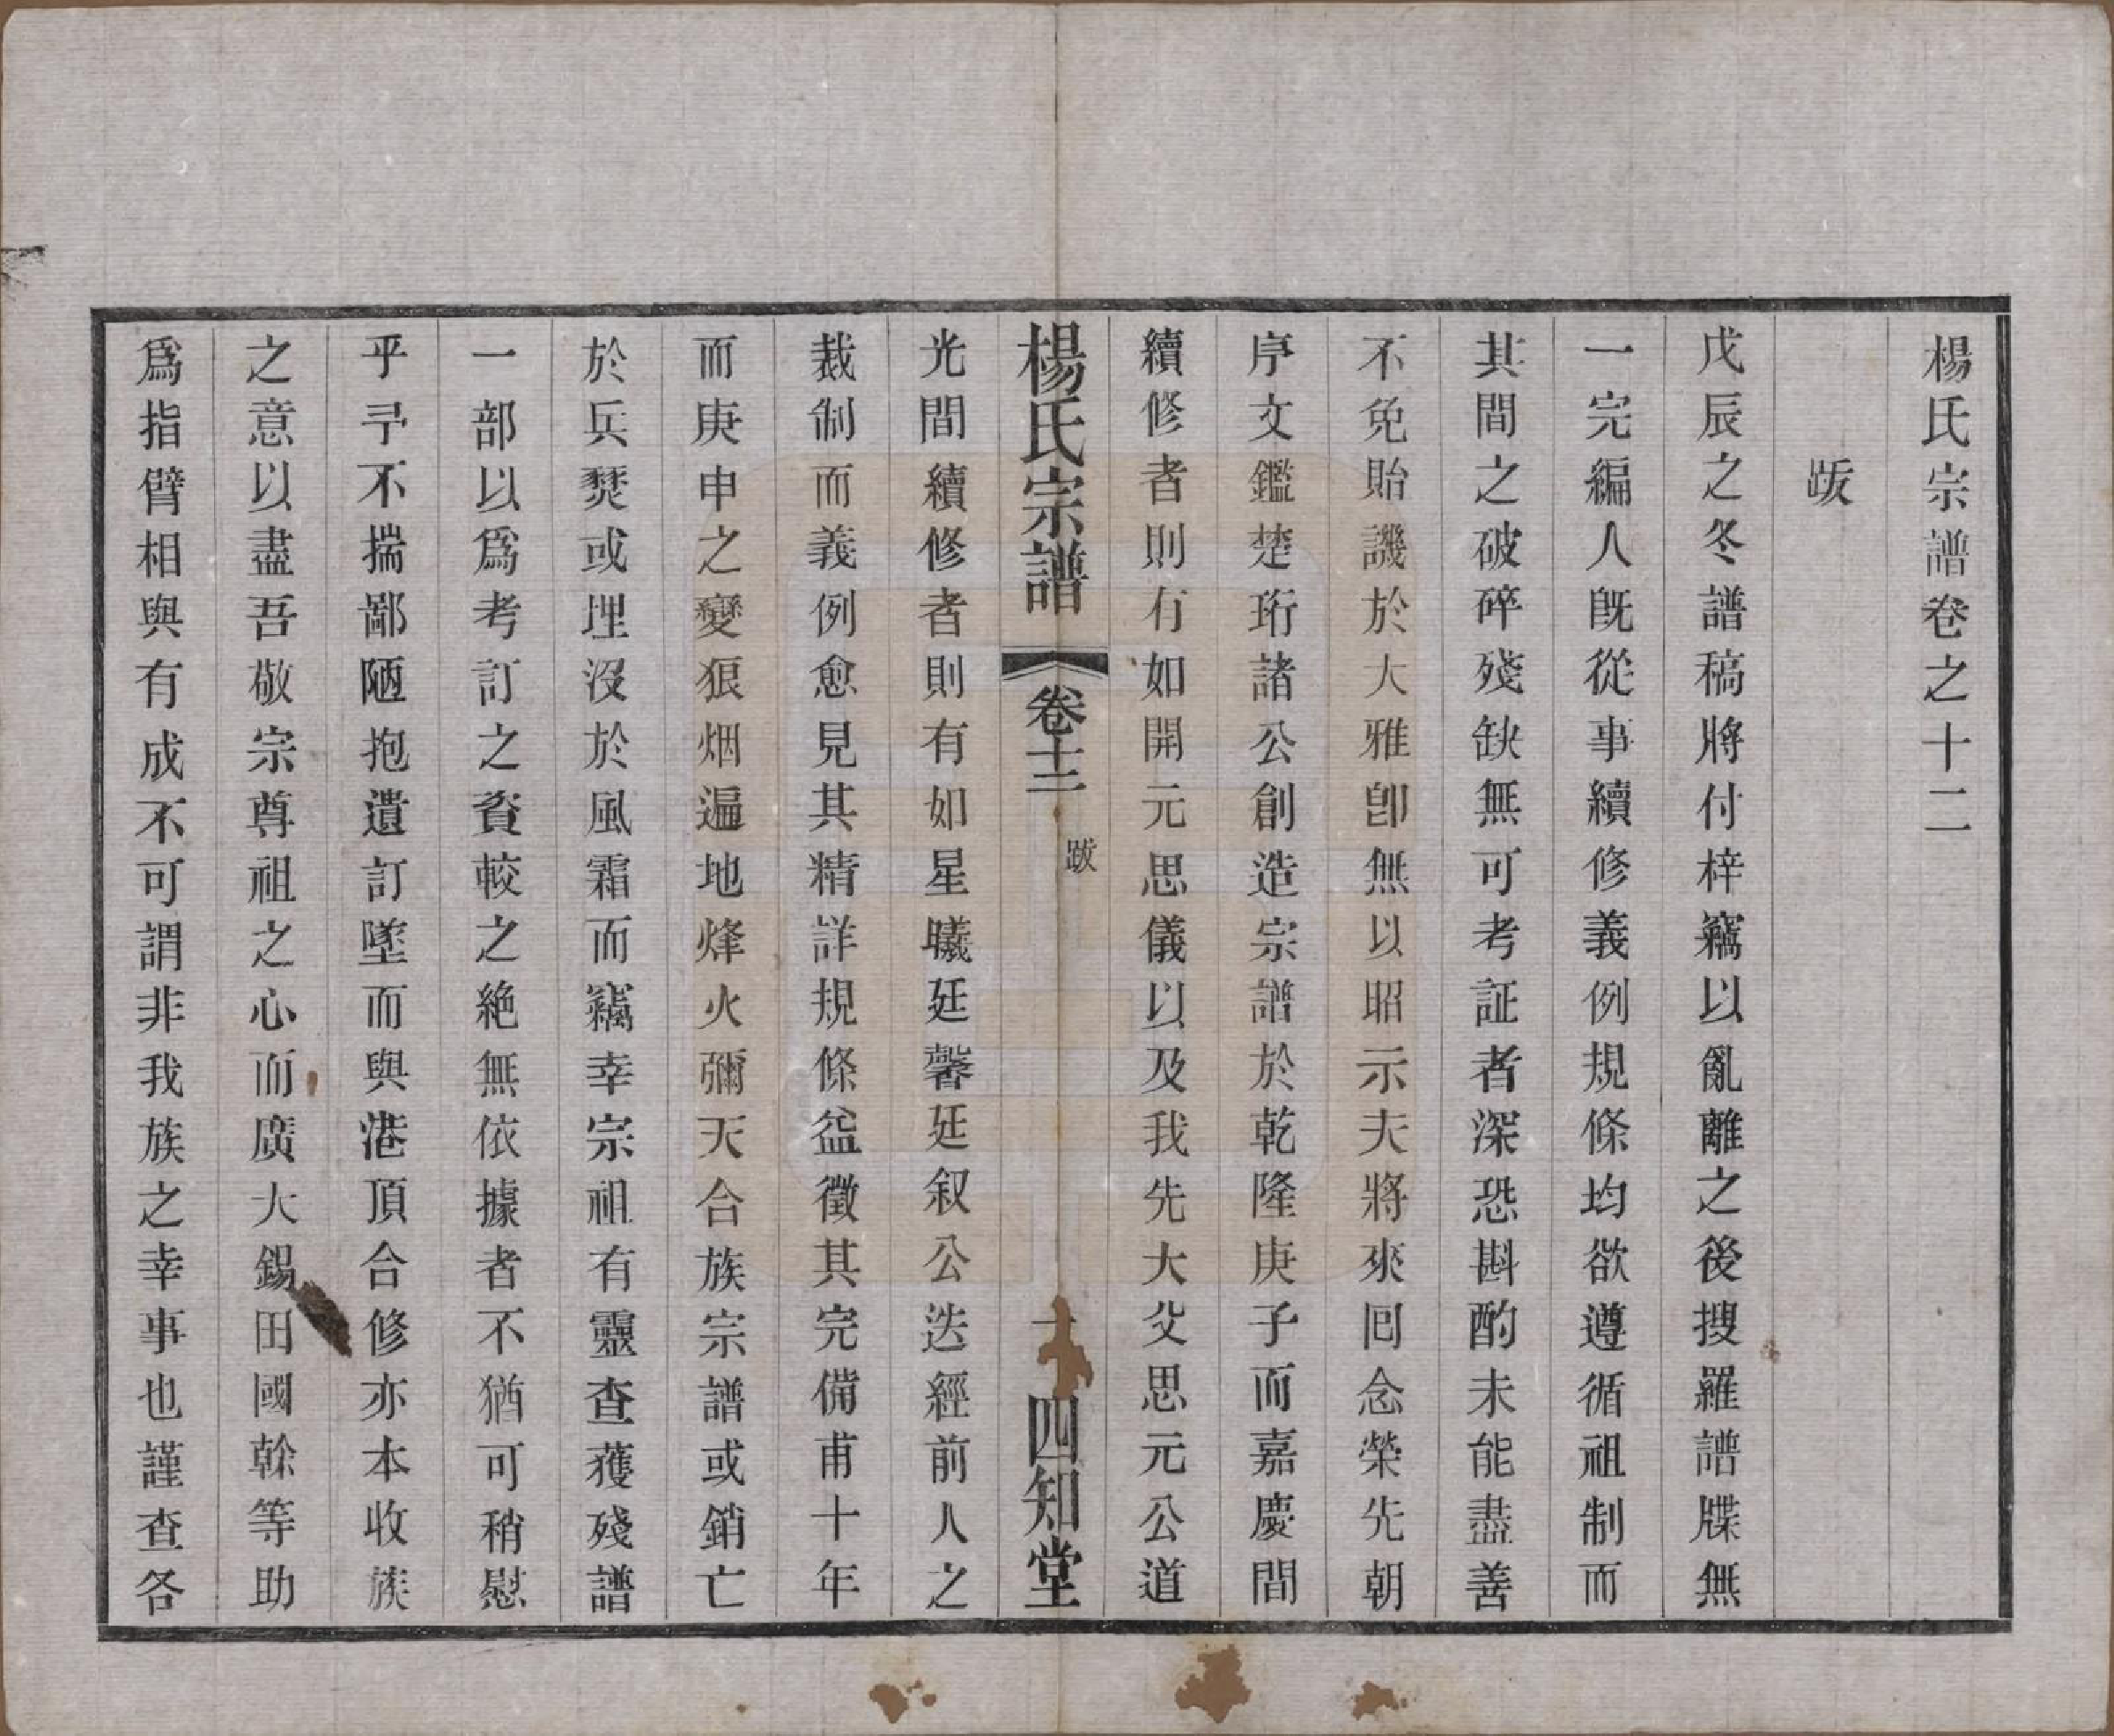 楊氏宗譜卷之十二
跋
戊辰之冬譜稿將付梓竊以亂離之後搜羅譜牒無
一完編人旣從事續修義例規條均欲遵循祖制而
其間之破碎殘缺無可考証者深恐斟酌未能盡善
不免貽譏於大雅卽無以昭示夫將來囘念榮先朝
序文鑑楚珩諸公創造宗譜於乾隆庚子而嘉慶間
續修者則有如開元思儀以及我先大父思元公道
楊氏宗譜
卷十二
跋
一
四知堂
光間續修者則有如星曦廷馨廷叙公迭經前人之
裁制而義例愈見其精詳規條益徵其完備甫十年
而庚申之變狼烟遍地烽火彌天合族宗譜或銷亡
於兵燹或埋沒於風霜而竊幸宗祖有靈查獲殘譜
一部以爲考訂之資較之絶無依據者不猶可稍慰
乎予不揣鄙陋抱遺訂墜而與港頂合修亦本收族
之意以盡吾敬宗尊祖之心而廣大錫田國榦等助
爲指臂相與有成不可謂非我族之幸事也謹查各